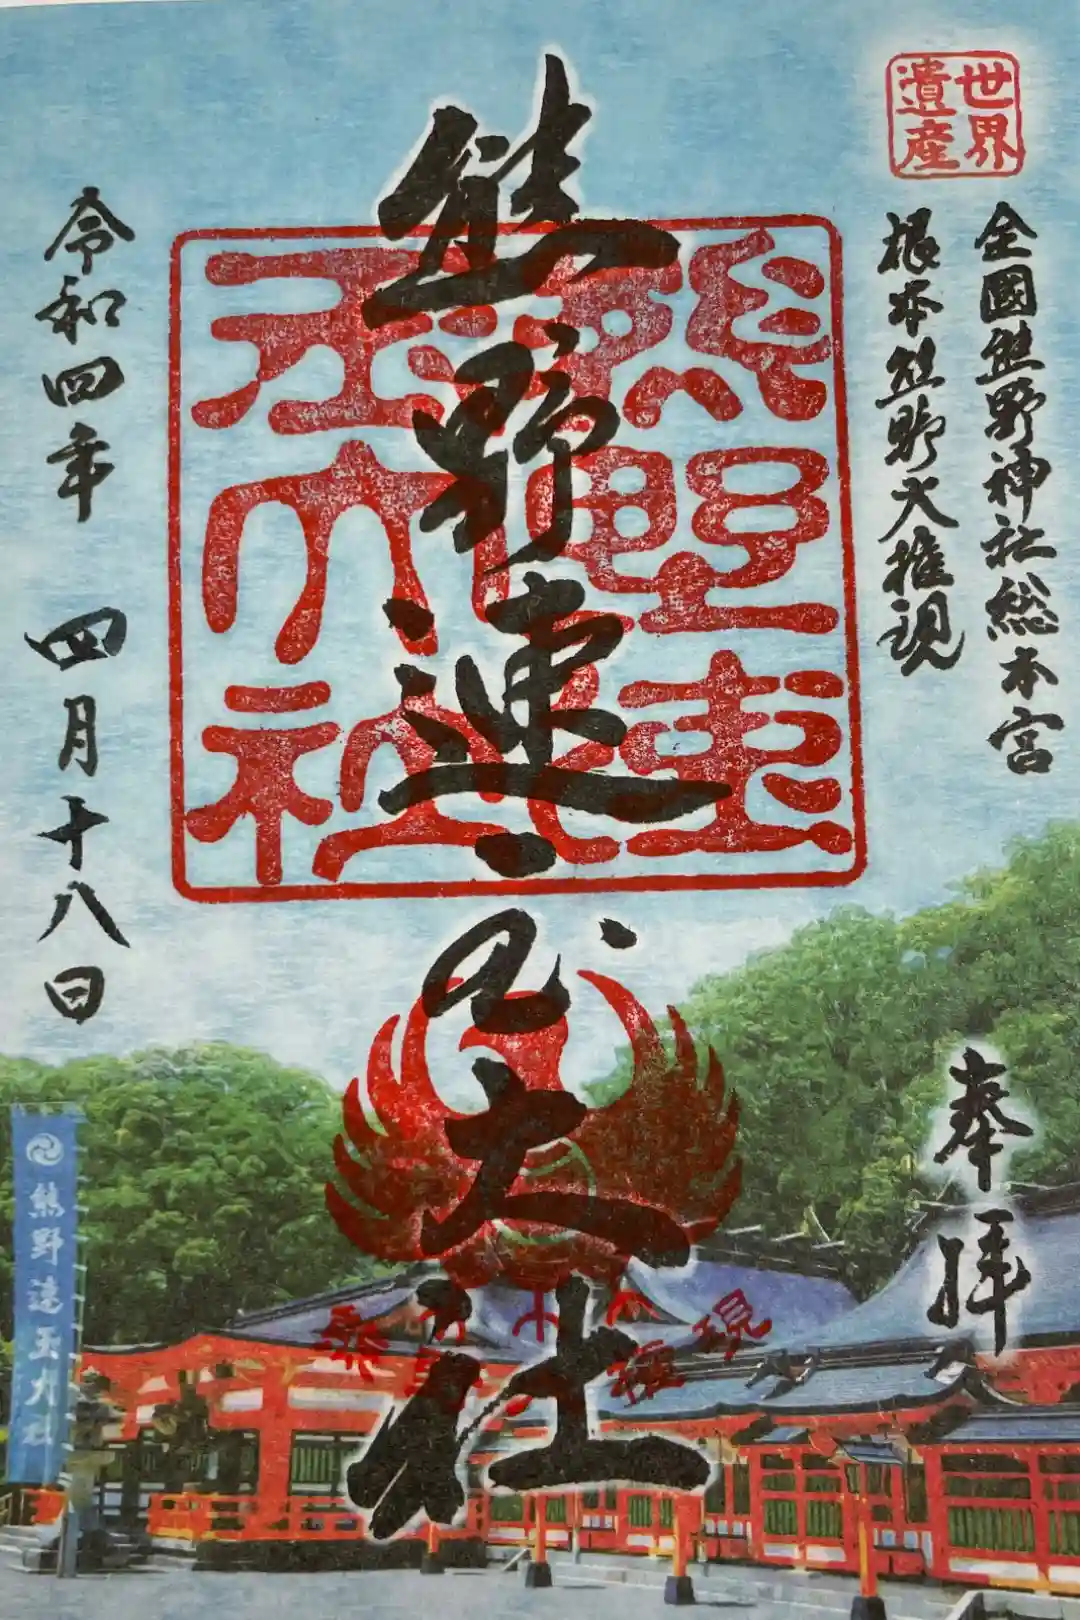 世界
遺産
全國熊野神社総本宮
根本熊野大権現
奉拝
熊野速玉大社
熊野速玉大社
令和四年 四月十八日
熊野速玉大社